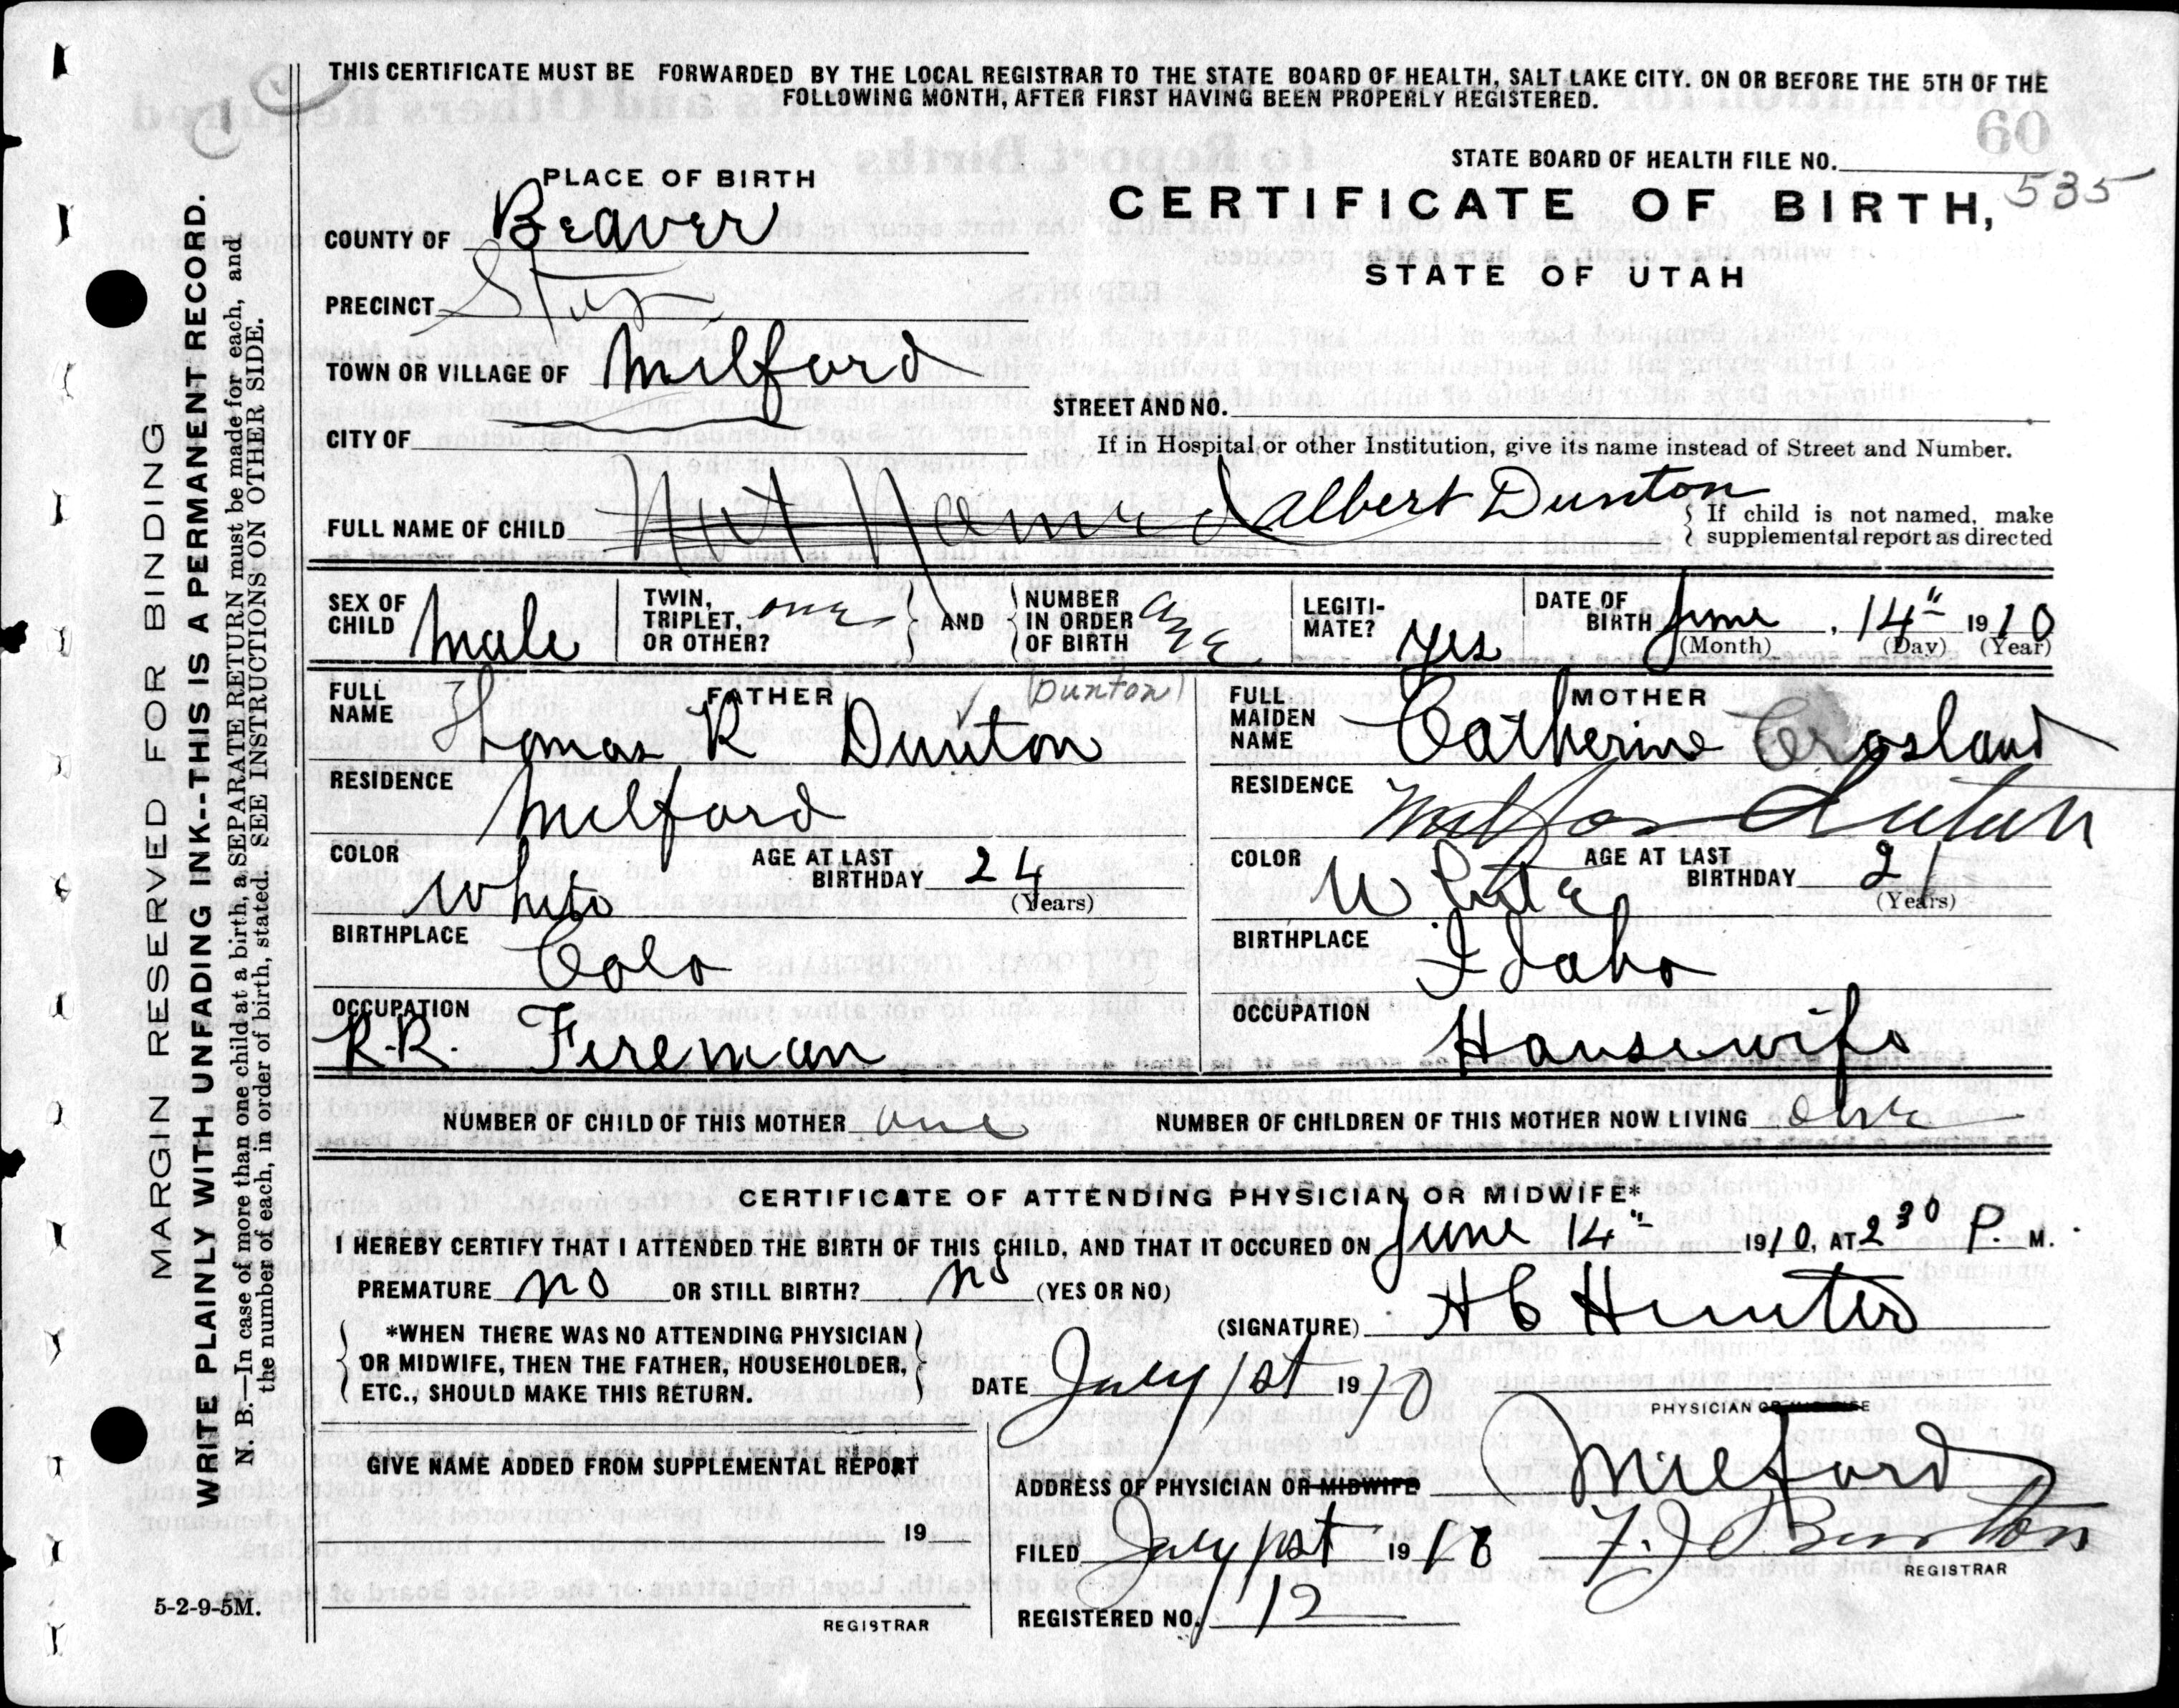 THIS CERTIFICATE MUST BE FORWARDED BY THE LOCAL REGISTRAR TO THE STATE BOARD OF HEALTH, SALT LAKE CITY. ON OR BEFORE THE 5TH OF THE
FOLLOWING MONTH, AFTER FIRST HAVING BEEN PROPERLY REGISTERED.
60
STATE BOARD OF HEALTH FILE NO.
535
PLACE OF BIRTH
CERTIFICATE OF BIRTH,
STATE OF UTAH
COUNTY OF Beaver
PRECINCT
TOWN OR VILLAGE OF Milford
STREET AND NO.
CITY OF
If in Hospital or other Institution, give its name instead of Street and Number.
FULL NAME OF CHILD Not Named Albert Dunton
If child is not named, make
supplemental report as directed
SEX OF CHILD Male
TWIN, TRIPLET, OR OTHER? one AND NUMBER IN ORDER OF BIRTH one
LEGITIMATE? yes
DATE OF BIRTH June, 14" 1910
(Month) (Day) (Year)
FATHER
FULL NAME Thomas R Dunton (Dunton)
RESIDENCE Milford
COLOR White
AGE AT LAST BIRTHDAY 24
(Years)
BIRTHPLACE Colo
OCCUPATION R.R. Fireman
MOTHER
FULL MAIDEN NAME Catherine Crosland
RESIDENCE Milford Utah
COLOR White
AGE AT LAST BIRTHDAY 21
(Years)
BIRTHPLACE Idaho
OCCUPATION Housewife
NUMBER OF CHILD OF THIS MOTHER one
NUMBER OF CHILDREN OF THIS MOTHER NOW LIVING one
CERTIFICATE OF ATTENDING PHYSICIAN OR MIDWIFE*
I HEREBY CERTIFY THAT I ATTENDED THE BIRTH OF THIS CHILD, AND THAT IT OCCURED ON June 14" 1910, AT 2 30 P. M.
PREMATURE no OR STILL BIRTH? no (YES OR NO)
*WHEN THERE WAS NO ATTENDING PHYSICIAN
OR MIDWIFE, THEN THE FATHER, HOUSEHOLDER,
ETC., SHOULD MAKE THIS RETURN.
(SIGNATURE) H C Hunter
DATE July 1st 1910
PHYSICIAN OR MIDWIFE
GIVE NAME ADDED FROM SUPPLEMENTAL REPORT
19
REGISTRAR
ADDRESS OF PHYSICIAN OR MIDWIFE Milford
FILED July 1st 1910
REGISTRAR
REGISTERED NO. 12
5-2-9-5M.
MARGIN RESERVED FOR BINDING
WRITE PLAINLY WITH UNFADING INK--THIS IS A PERMANENT RECORD.
N. B.—In case of more than one child at a birth, a SEPARATE RETURN must be made for each, and
the number of each, in order of birth, stated. SEE INSTRUCTIONS ON OTHER SIDE.